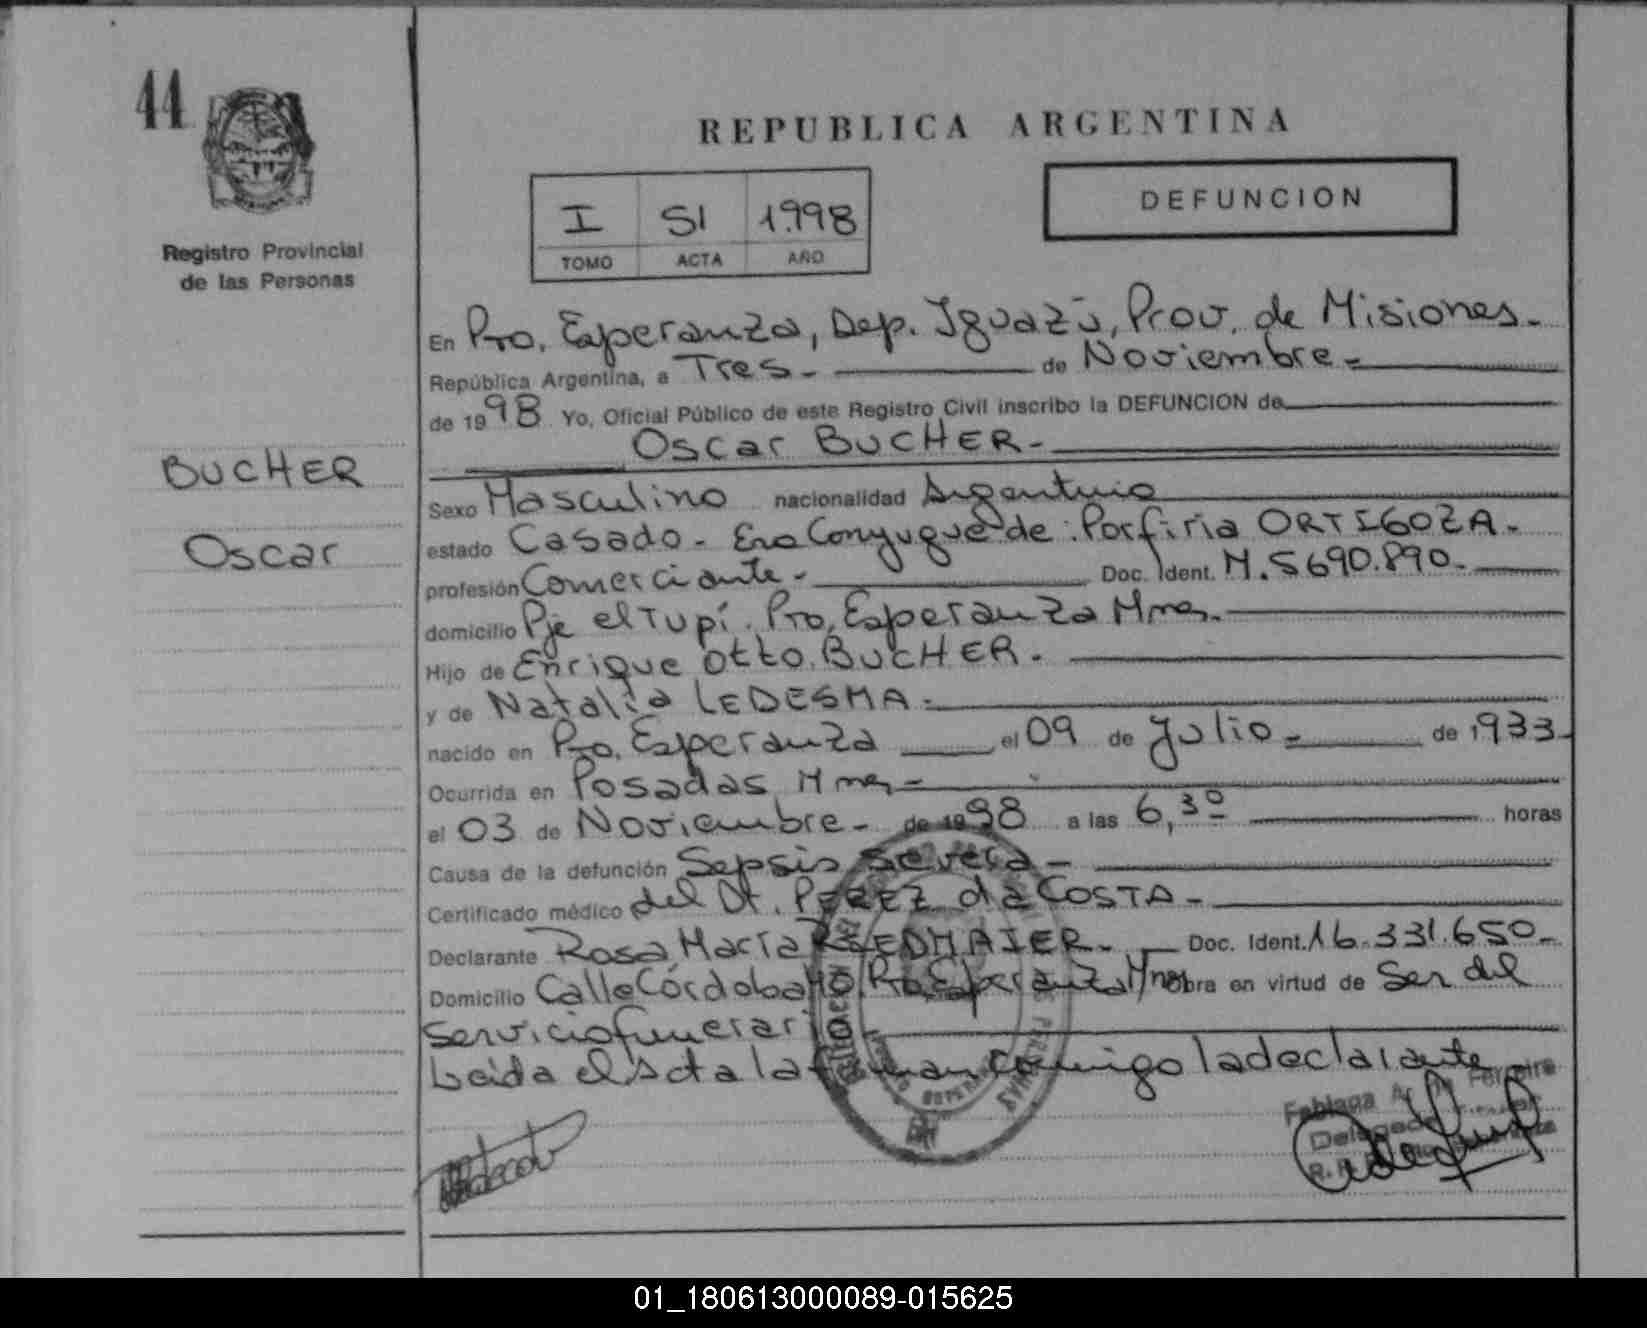 44
REPUBLICA ARGENTINA
DEFUNCION
I 51 1.998
TOMO ACTA AÑO
Registro Provincial
de las Personas
BUCHER
Oscar
En Pto. Esperanza, Dep. Iguazú, Prov. de Misiones.
República Argentina, a Tres.- de Noviembre.-
de 1998 Yo, Oficial Público de este Registro Civil inscribo la DEFUNCION de
Oscar BUCHER.-
Sexo Masculino nacionalidad Argentino
estado Casado.- Era Conyugue de: Porfiria ORTIGOZA.-
profesión Comerciante.- Doc. Ident. M.5690.890.-
domicilio Pje el Tupí. Pto. Esperanza Mnes.-
Hijo de Enrique Otto. BUCHER.-
y de Natalia LEDESMA.-
nacido en Pto. Esperanza el 09 de Julio.- de 1933.
Ocurrida en Posadas Mnes.-
el 03 de Noviembre.- de 1998 a las 6,30 horas
Causa de la defunción Sepsis Severa.-
Certificado médico del Dt. PEREZ da COSTA.-
Declarante Rosa María Doc. Ident. 16.331.650.-
Domicilio Calle Córdoba Pto. Esperanza Mnes obra en virtud de Ser del
Servicio funerario
Leída el Acta la firman conmigo la declarante
Delegada
01_180613000089-015625